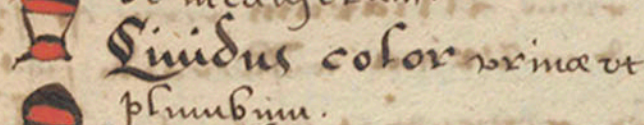 Liuidus color vrinæ vt
plumbum.